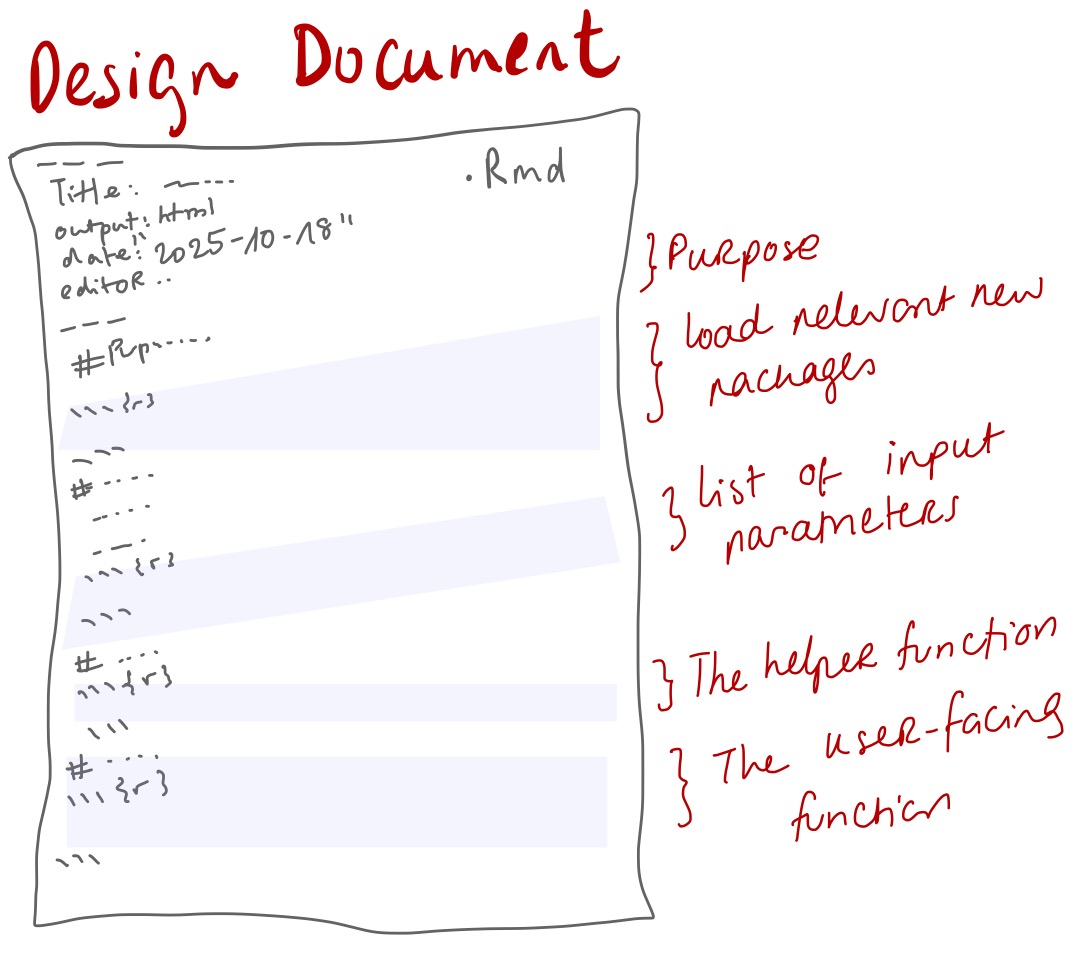 Design Document
---
Title: ~---
.Rmd
output: html
date: "2025-10-18"
editor ..
---
#Purp.....
```{r}
```
# ....
-....
---.
```{r}
```
# ....
```{r}
```
# ....
```{r}
```
} Purpose
} load relevant new
packages
} list of input
parameters
} The helper function
} The user-facing
function